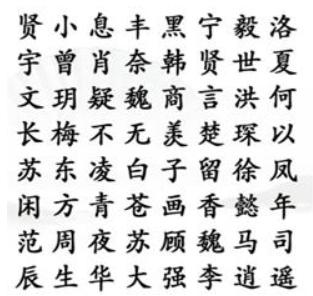 贤小息丰黑宁毅洛
宇曾肖奈韩贤世夏
文玥疑魏商言洪何
长梅不无羡楚琛以
苏东凌白子留徐凤
闲方青苍画香懿年
范周夜苏顾魏马司
辰生华大强李逍遥